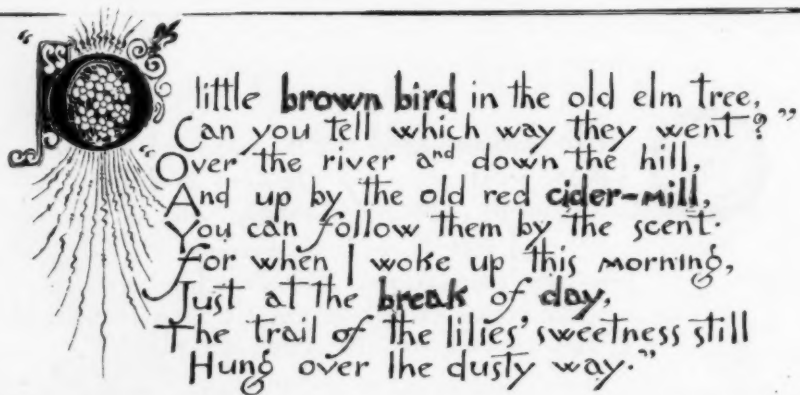 "O little brown bird in the old elm tree,
Can you tell which way they went?"
"Over the river and down the hill,
And up by the old red cider-mill,
You can follow them by the scent.
For when I woke up this morning,
Just at the break of day,
The trail of the lilies' sweetness still
Hung over the dusty way."